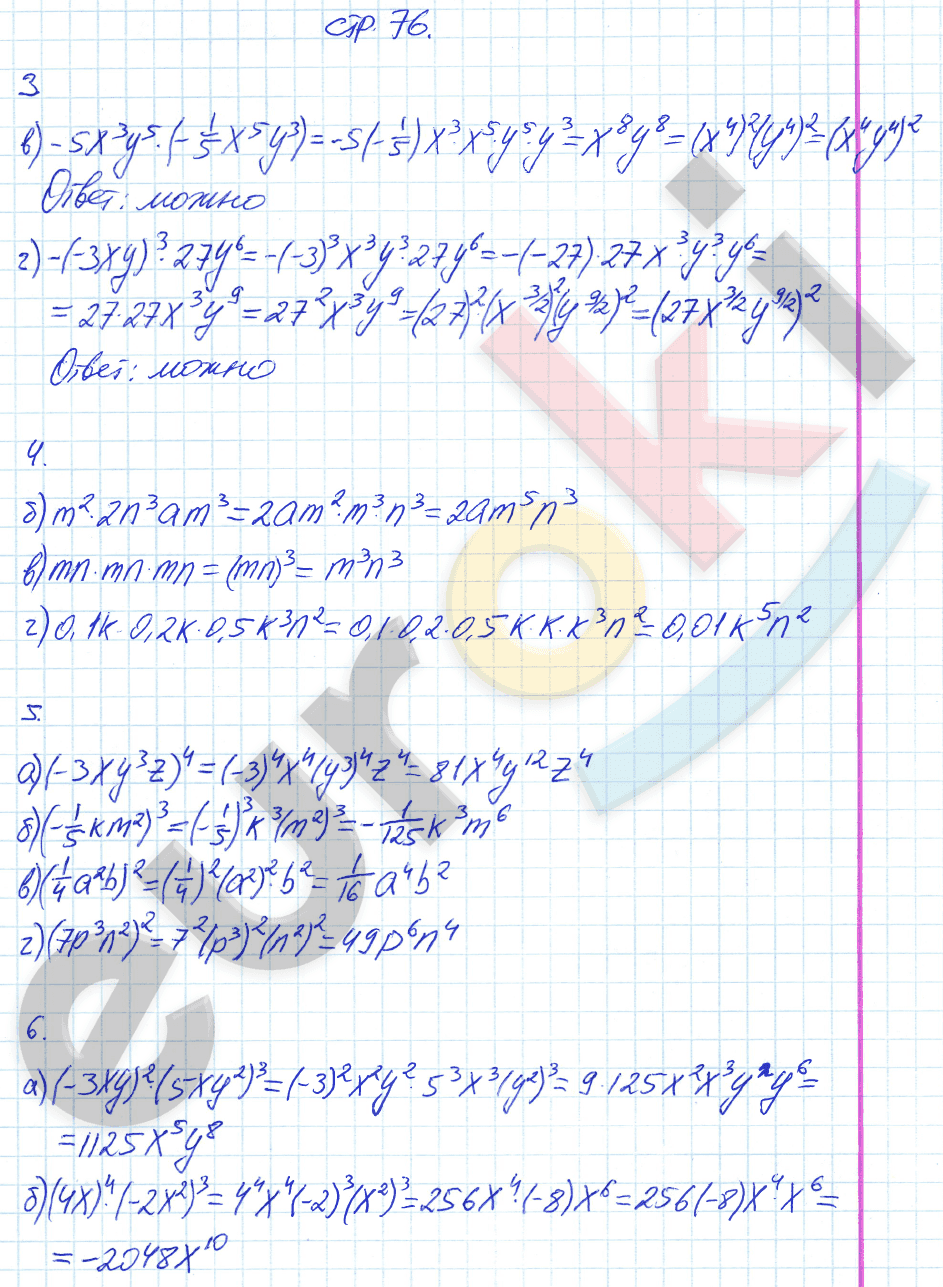 стр. 76.
3
в) -5x³y⁵·(-1/5x⁵y³)=-5(-1/5)x³·x⁵·y⁵·y³=x⁸y⁸=(x⁴)²(y⁴)²=(x⁴y⁴)²
Ответ: можно
г) -(-3xy)³·27y⁶=-(-3)³x³y³·27y⁶=-(-27)·27x³·y³·y⁶=
=27·27x³y⁹=27²x³y⁹=(27)²·(x^3/2)²(y^9/2)²=(27x^3/2y^9/2)²
Ответ: можно
4.
б) m²·2n³am³=2am²·m³·n³=2am⁵n³
в) mn·mn·mn=(mn)³=m³n³
г) 0,1k·0,2k·0,5k³n²=0,1·0,2·0,5k·k·k³n²=0,01k⁵n²
5.
а) (-3xy³z)⁴=(-3)⁴x⁴(y³)⁴z⁴=81x⁴y¹²z⁴
б) (-1/5km²)³=(-1/5)³k³(m²)³=-1/125k³m⁶
в) (1/4a²b)²=(1/4)²(a²)²·b²=1/16a⁴b²
г) (7p³n²)²=7²(p³)²(n²)²=49p⁶n⁴
6.
а) (-3xy)²·(5xy²)³=(-3)²x²y²·5³x³(y²)³=9·125x²x³y²y⁶=
=1125x⁵y⁸
б) (4x)⁴·(-2x²)³=4⁴x⁴(-2)³(x²)³=256x⁴·(-8)x⁶=256(-8)x⁴x⁶=
=-2048x¹⁰
euroki